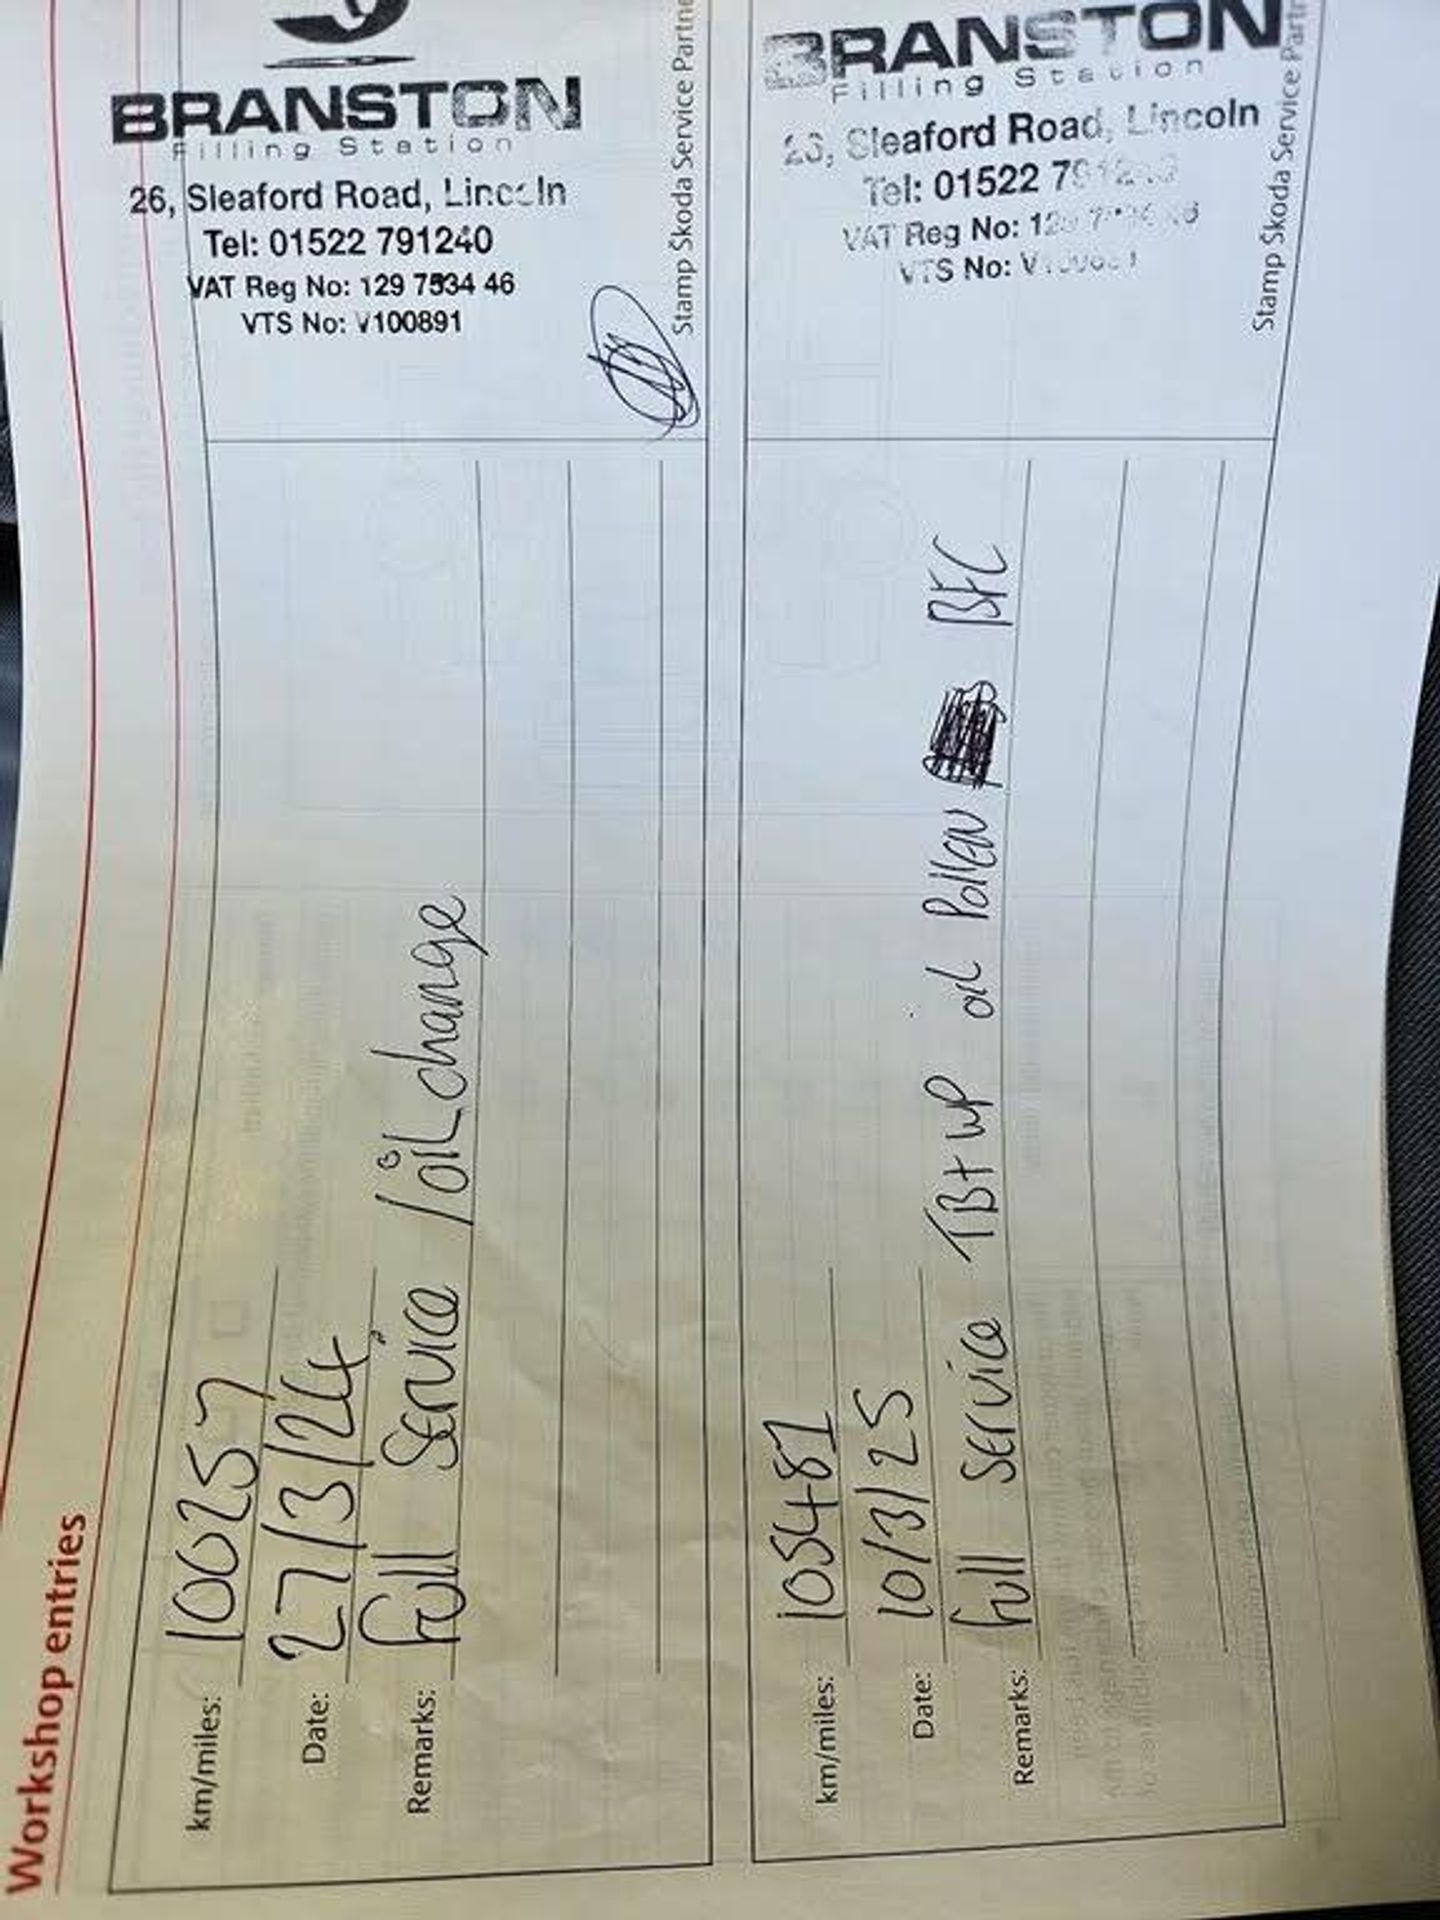 Workshop entries
km/miles: 100257
Date: 27/3/24
Remarks: Full Service / oil change
BRANSTON
Filling Station
26, Sleaford Road, Lincoln
Tel: 01522 791240
VAT Reg No: 129 7534 46
VTS No: V100891
Stamp Škoda Service Partne
km/miles: 105481
Date: 10/3/25
Remarks: Full Service TB + WP oil Pollen BFC
BRANSTON
Filling Station
26, Sleaford Road, Lincoln
Tel: 01522 791240
VAT Reg No:
VTS No:
Stamp Škoda Service Partn